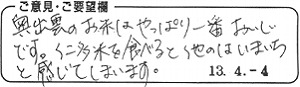 ご意見・ご要望欄
奥出雲のお米はやっぱり一番おいしい
です。仁多米を食べると他のはいまいち
と感じてしまいます。
13.4.-4